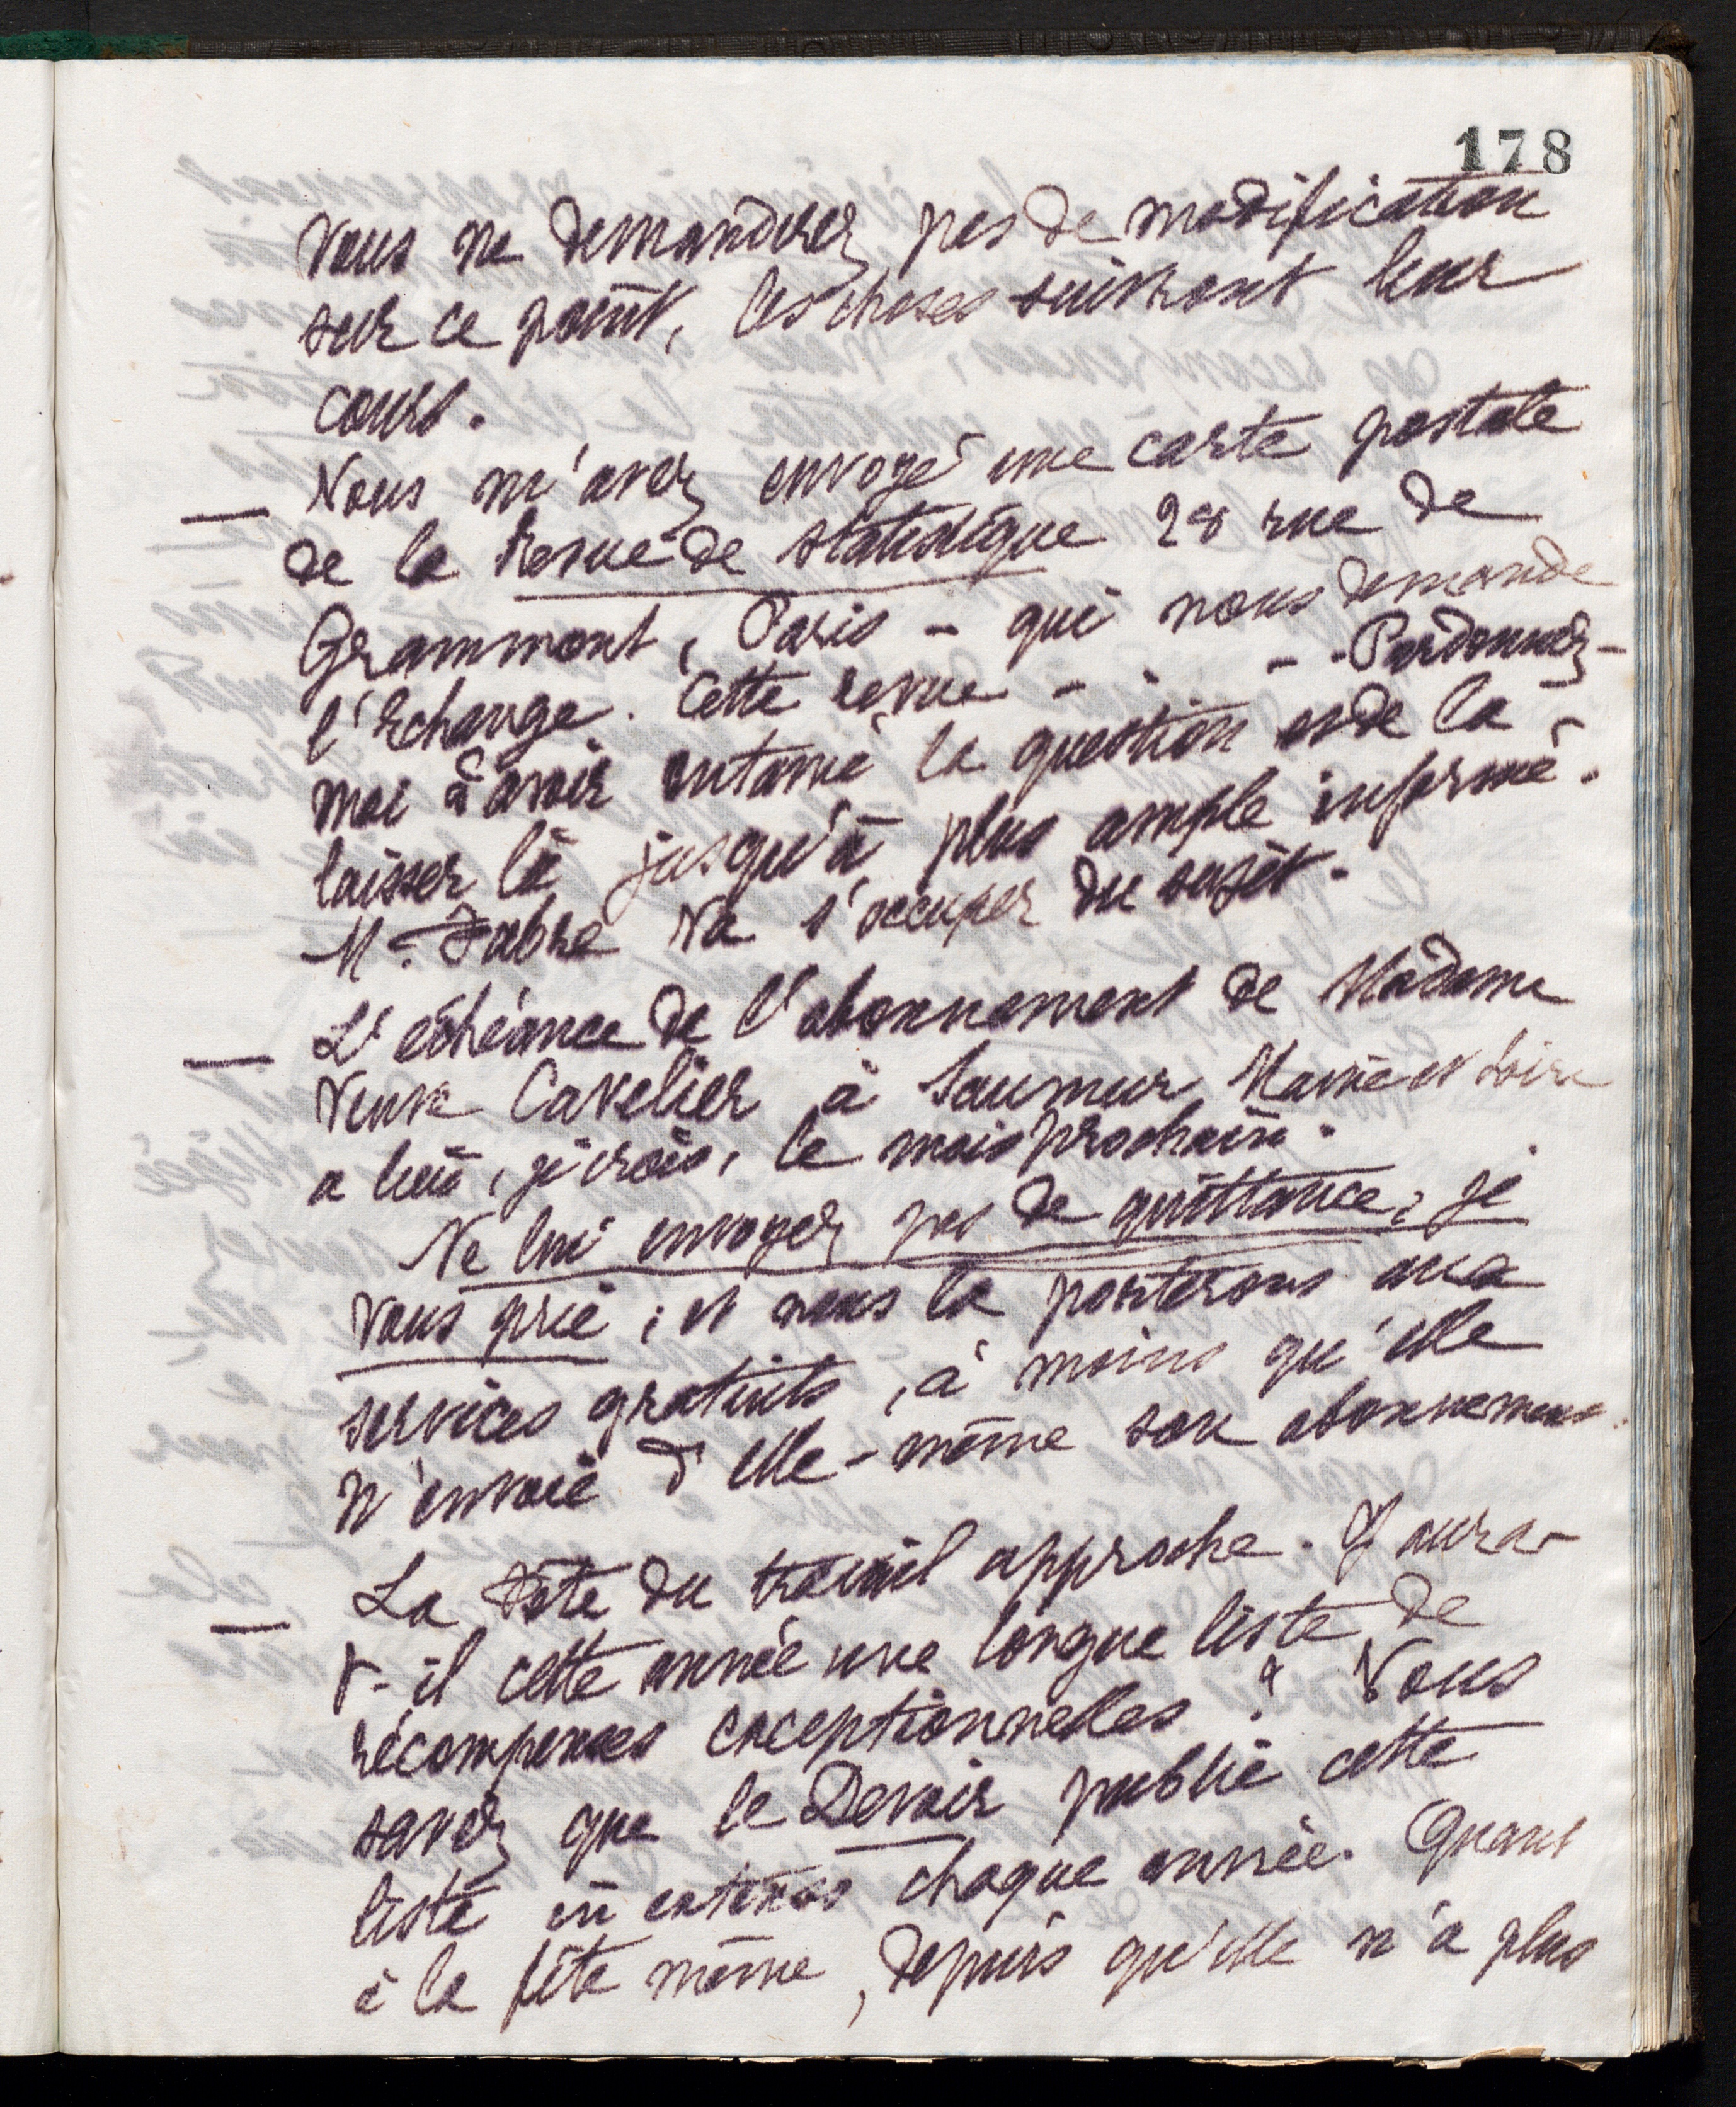 178
vous ne demanderez pas de modification
sur ce point, les choses suivront leur
cours.
— Vous m'avez envoyé une carte postale
de la Revue de statistique 28 rue de
Grammont, Paris - qui nous demande
l'échange. Cette revue - . - - Pardonnez-
moi d'avoir entamé la question et de la
laisser là jusqu'à plus ample informé.
M. Fabre va s'occuper du sujet.
— L'échéance de l'abonnement de Madame
Veuve Cavelier à Saumur, Maine et Loire
a lieu, je crois, le mois prochain.
Ne lui envoyez pas de quittance, je
vous prie ; et nous la porterons aux
services gratuits, à moins qu'elle
n'envoie d'elle-même son abonnement.
— La Fête du travail approche. Y aura-
t-il cette année une longue liste de
récompenses exceptionnelles ? Vous
savez que le Devoir publie cette
liste in extenso chaque année. Quant
à la fête même, depuis qu'elle n'a plus